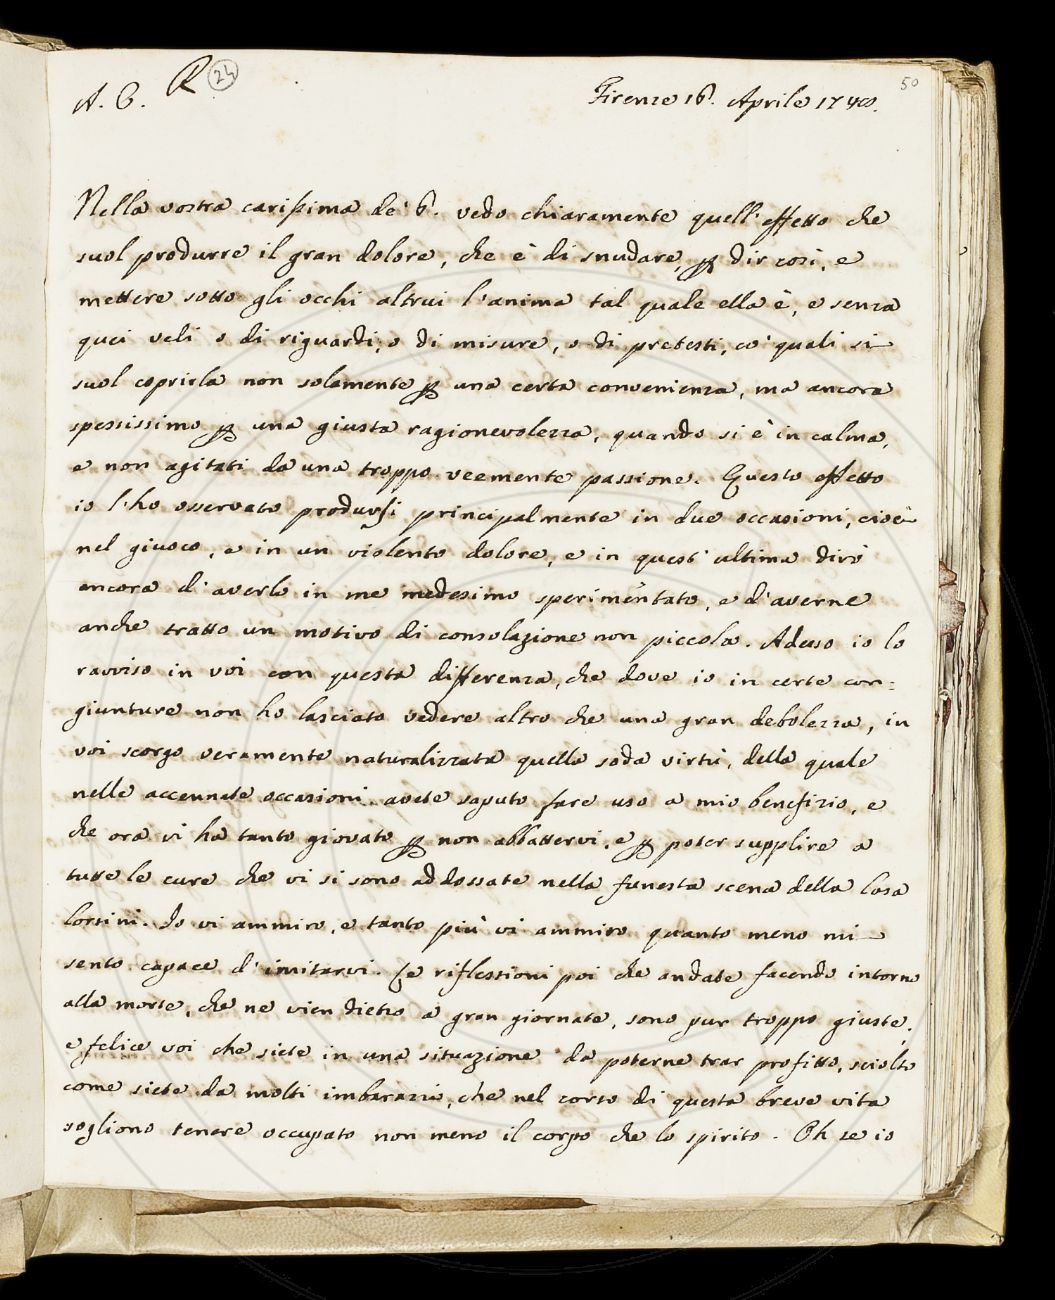 A. C. R 24
50
Firenze 16. Aprile 1748.
Nella vostra carissima de' 6. vedo chiaramente quell'effetto che
suol produrre il gran dolore, che è di snudare, ꝑ dir così, e
mettere sotto gli occhi altrui l'anima tal quale ella è, e senza
quei veli o di riguardi, o di misure, o di pretesti, co' quali si
suol coprirla non solamente ꝑ una certa convenienza, ma ancora
spessissimo ꝑ una giusta ragionevolezza, quando si è in calma,
e non agitati da una troppo veemente passione. Questo effetto
io l'ho osservato prodursi principalmente in due occasioni, cioè
nel giuoco, e in un violento dolore, e in quest'ultima dirò
ancora d'averlo in me medesimo sperimentato, e d'averne
anche tratto un motivo di consolazione non piccola. Adesso io lo
ravviso in voi con questa differenza, che dove io in certe con:
giunture non ho lasciato vedere altro che una gran debolezza, in
voi scorgo veramente naturalizzata quella soda virtù, della quale
nelle accennate occasioni avete saputo fare uso a mio benefizio, e
che ora vi ha tanto giovato ꝑ non abbattervi, e ꝑ poter supplire a
tutte le cure che vi si sono addossate nella funesta scena della Casa
Corsini. Io vi ammiro, e tanto più vi ammiro quanto meno mi
sento capace d'imitarvi. Le riflessioni poi che andate facendo intorno
alla morte, che ne vien dietro a gran giornate, sono pur troppo giuste,
e felice voi che siete in una situazione da poterne trar profitto, sciolto
come siete da molti imbarazzi, che nel corso di questa breve vita
sogliono tenere occupato non meno il corpo che lo spirito. Oh se io